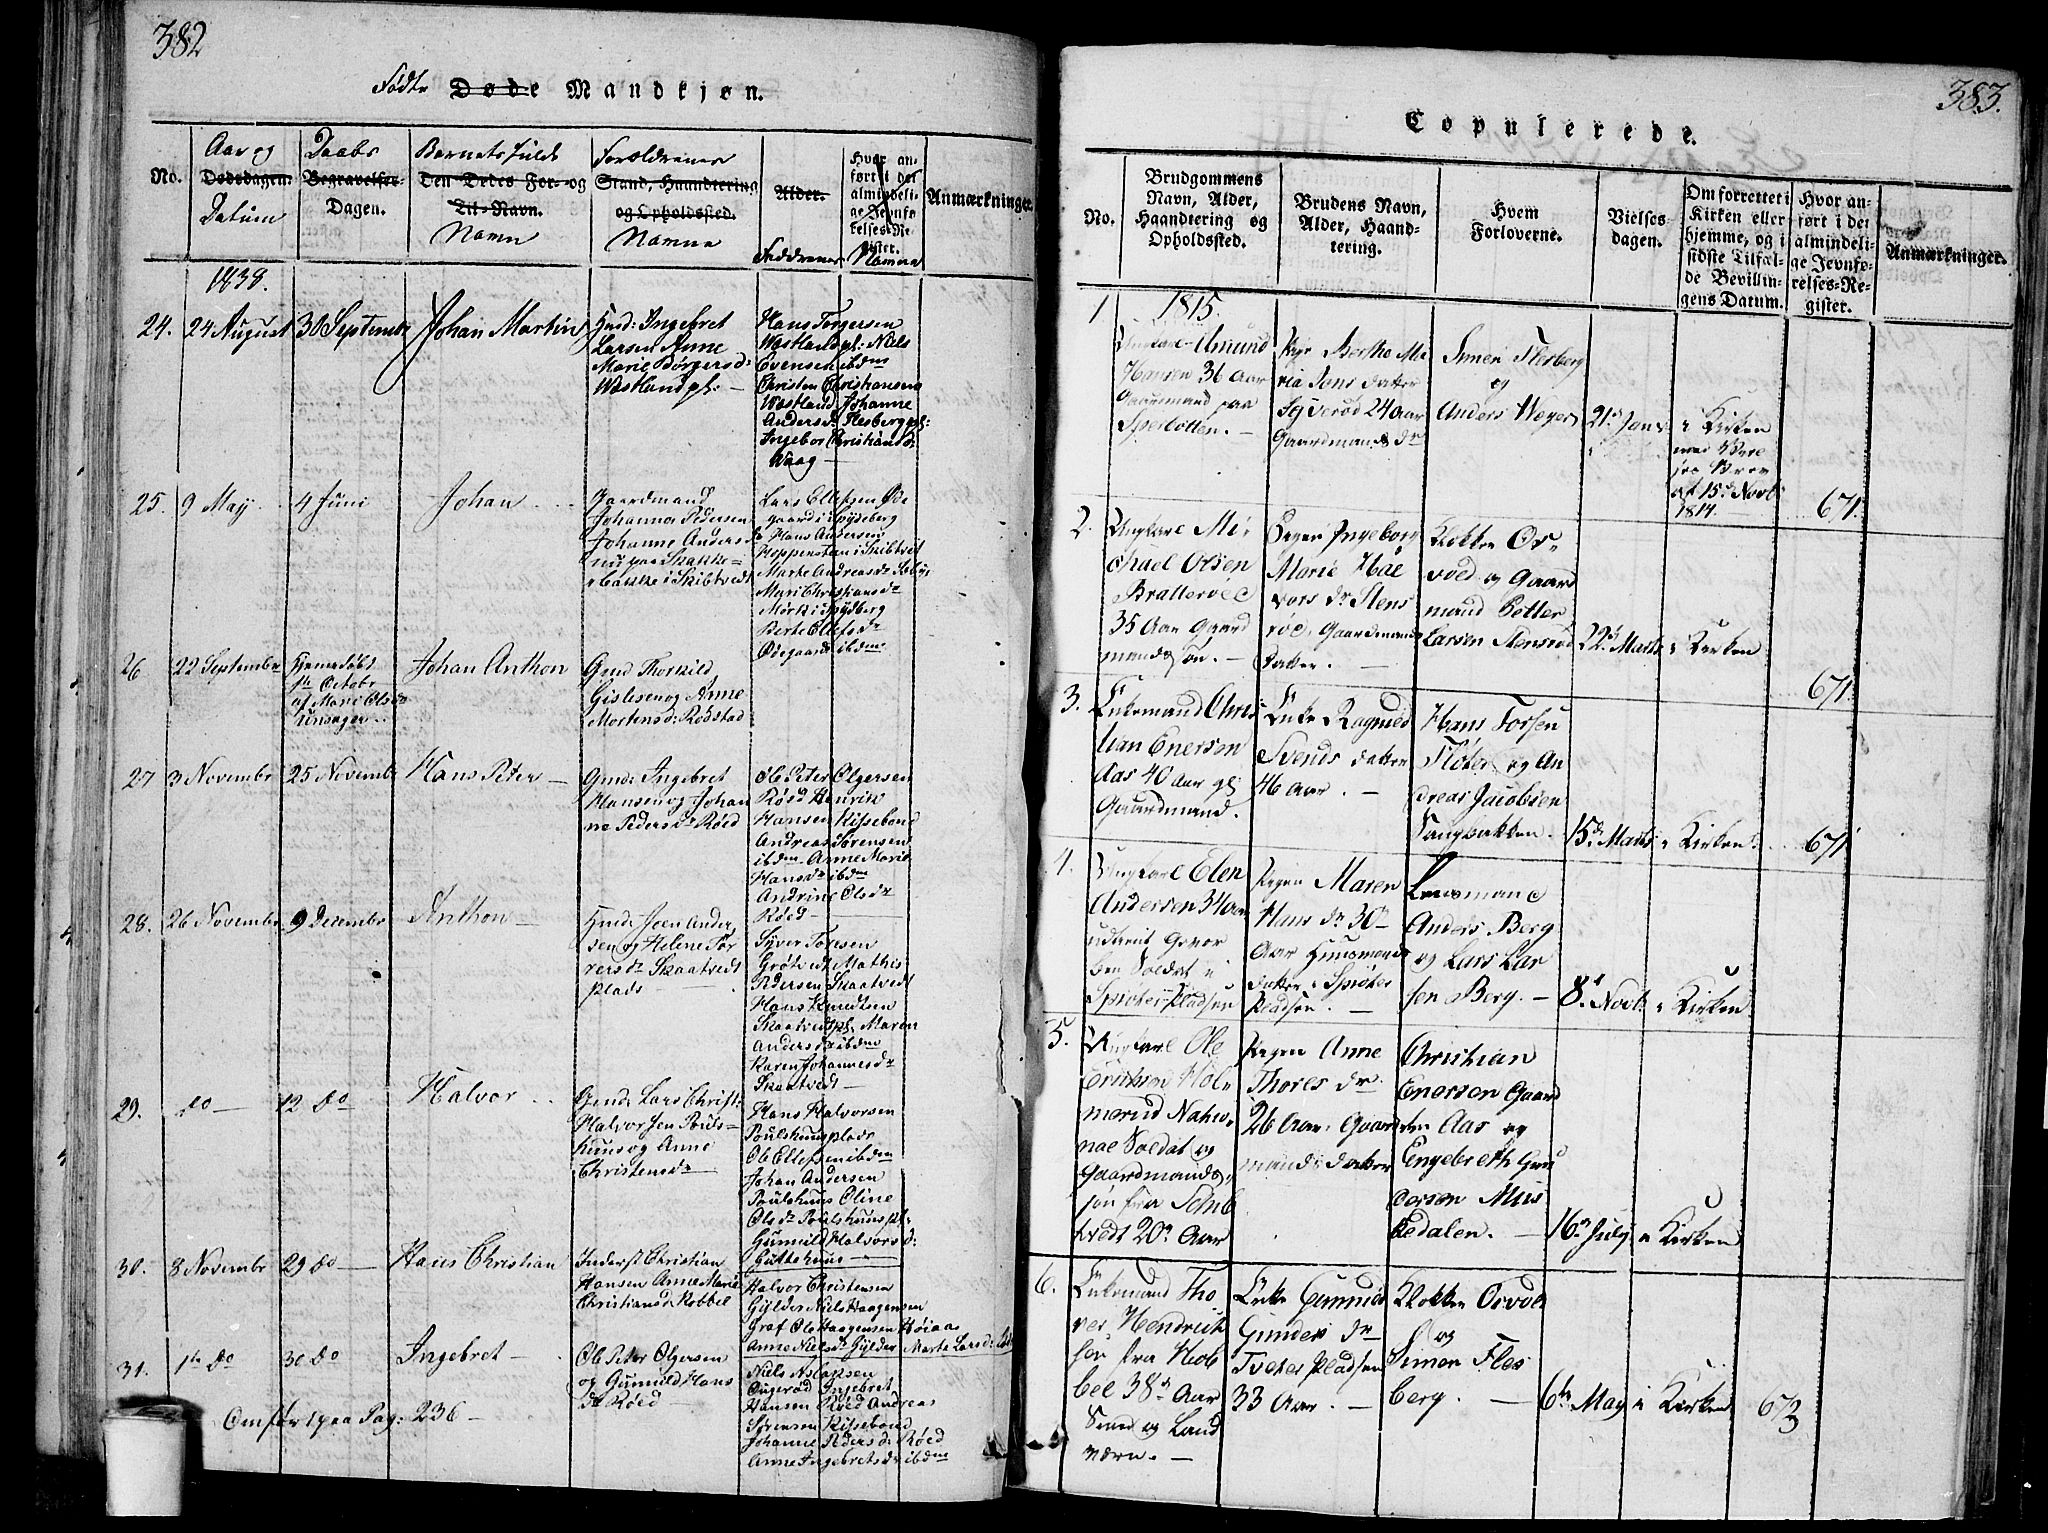 382
Fødte Døde Mandkjøn.
No.
Aar og
Dødsdagen.
Datum
Daabs
Begravelses-
Dagen.
Barnets fulde
Den Dødes For- og
Til-Navn.
Navn
Forældrenes
Stand, Haandtering
og Opholdssted.
Navne
Alder.
Faddernes
Hvor an-
ført i det
almindeli-
ge Jevnfø-
relses-Re-
gister.
Navne
Anmærkninger.
1838.
24.
24 August
30 Septembr
Johan Martin
Huusmd: Ingebret
Larsen Anne
Marie Børgersd:
Wæstlund pl: —
Hans Torgersen
Wæstlund pl: Niels
Evensen ibdm
Christen Christiansen
Wæstlund Johanne
Andersd: Flesberg pl:
Ingebor Christiansdr
Waag —
25.
9 May
4 Juni
Johan
Gaardmand
Johannes Pedersen
Johanne Andersd
Bakke i Skibtvedt
Lars Ellefsen Øde
gaard i Spydeberg
Hans Andersen
Hoppestan i Skibtvet
Marte Andreasdr
Mari Christiansdr
Mørk i Spydberg
Berte Ellefsdr
Ødegaard ibdm
26
22 Septembr
Hjemedøbt
1ste Octobr
af Marie Olsdr
Johan Anthon
Gmd: Thorkild
Gislesen og Anne
Mortensd: Rødstad
27
3 Novembr
25 Novembr
Hans Peter —
Gmd: Ingebret
Hansen og Johan
ne Pedersdr Røed
Ole Peter Olgersen
Røed Henrik
Hansen Kissebond
Andreas Sørensen
ibdm Anne Marie
Hansdr ibdm
Andrine Olsdr
Røed —
28.
26 Novembr
9 Decembr
Anthon —
Huusmd: Joen Ander
sen og Helene Tor
gersdr Skaatvedt
plads —
Syver Toresen
Grøtvedt Mathis
Pedersen Skaatvedt
Hans Knudtsen
Skaatvedt pl. Maren
Andersdr ibdm
Karen Johannesdr
Skaatvedt —
29.
do —
12 do
Halvor
Gmd: Lars Christ:
Halvorsen Pouls-
huus og Anne
Christensdr
Hans Halvorsen
Poulshuus plads
Ole Ellefsen ibdm
Johan Andersen
Poulshuus Oline
Olsdr Poulshuus pl:
Gunnild Halvorsd:
Guttehuus —
30.
8 Novembr
29 do —
Hans Christian
Inderst Christian
Hansen Anne Marie
Christiansdr Kobbel
Halvor Christensen
Gylder Niels Haagensen
Graf Ole Haagensen Høiaas
Anne Nielsdr Gylder Marte Larsd:
31.
1ste do
30 do
Ingebret —
Ole Peter Olgersen
og Gunnild Hans
dr Røed —
Niels Aslaksen
Ingebret
Hansen Røed Andreas
Sørensen Kissebond
Johanne Pedersd: Røed
Anne Ingebretsdr ibdm
Omført paa Pag: 236 —
383.
Copulerede.
No.
Brudgommens
Navn, Alder,
Haandtering og
Opholdssted.
Brudens Navn,
Alder, Haand-
tering.
Hvem
Forloverne.
Vielses-
dagen.
Om forrettet i
Kirken eller
hjemme, og i
sidste Tilfæl-
de Bevillin-
gens Datum.
Hvor an-
ført i det
almindeli-
ge Jevnfø-
relses-Re-
gister.
Anmærkninger.
1815.
1
Ungkarl Amund
Hansen 36 Aar
Gaardmand paa
Sperlotten. —
Pige Berthe Ma
ria Jens datter
24 Aar
Gaardmands dr
Simen Flesberg
og
Anders Weger
21de Janr
i Kirken
af 15de Novbr
1814
671.
2.
Ungkarl Mi-
chael Olsen
Bratterød
35 Aar Gaard
mandssøn. —
Pigen Ingeborg
Marie Hal
vors dr Stens
rød, Gaardmands
datter. —
Klokker Or-
vold og Gaard
mand Petter
Larsen Stensrød
22de Marts
i Kirken
671.
3.
Enkemand Chris
tian Enersen
Aas 40 Aar gl.
Gaardmand.
Enke Ragnild
Svends datter
46 Aar. —
Hans Torsen
Fløter og An
dreas Jacobsen
Sangbakken.
15de Marts
i Kirken
671
4.
Ungkarl Elen
Andersen 34 Aar
udtient Gevor
ben Soldat i
Spiøter Pladsen
Pigen Maren
Hans dr 30
Aar Huusmands
datter i Spiøter
Pladsen. —
Lensmand
Anders Berg
og Lars Lar
sen Berg. —
8de Novbr.
i Kirken
5.
Ungkarl Ole
Erichsen Hol-
merud Natio-
nal Soldat og
Gaardmands-
søn fra Skib
tvedt 20 Aar
Pigen Anne
Thores dr.
26 Aar, Gaard
mands datter
Christian
Enersen Gaard
Aas og
Engebreth Gun
dersen Mus
sedalen. —
16de July
i Kirken
6.
Enkemand Tho
res Hendrich
sen fra Kob
bel 38 Aar
Smed og Land
værn. —
Enke Gunnild
Gunders dr
Tveter Pladsen
33 Aar. —
Klokker Orvold
og
Simon Fles
berg. —
6te May
i Kirken
673